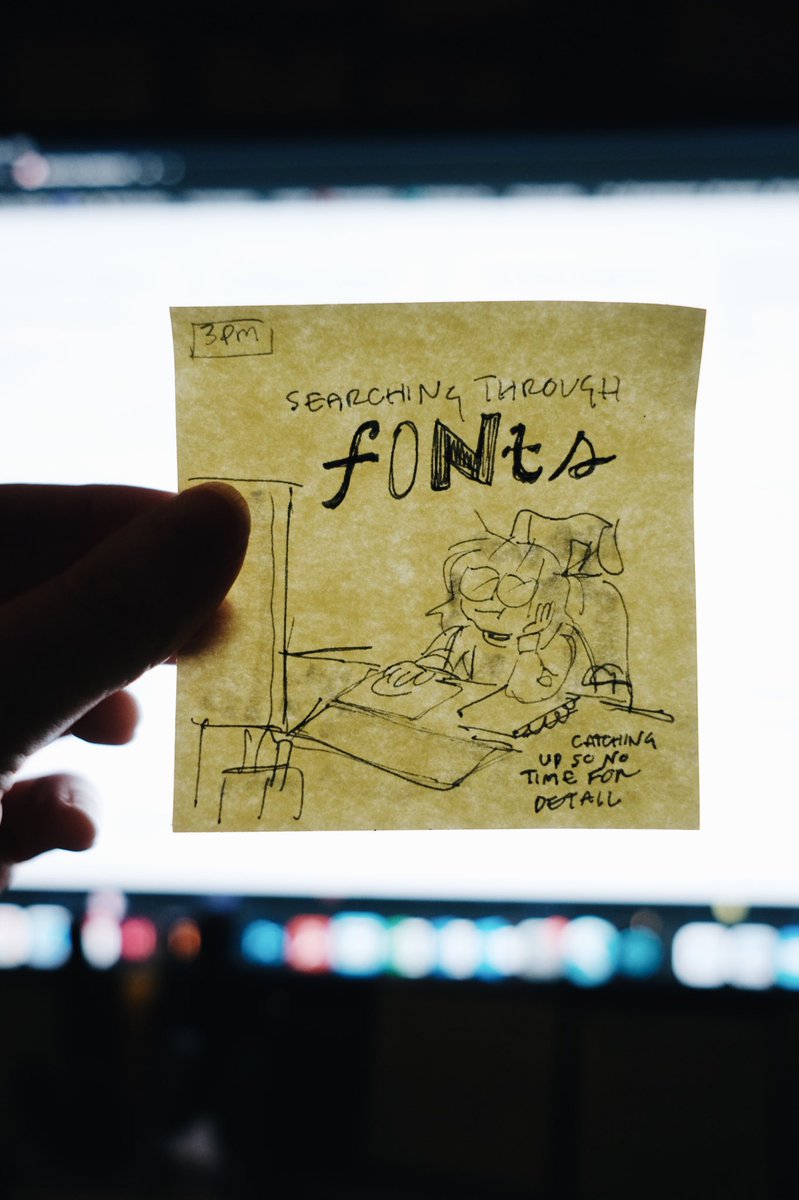 3pm
SEARCHING THROUGH
fONts
CATCHING
UP SO NO
TIME FOR
DETAIL